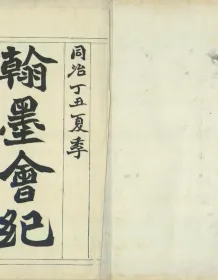 同治丁丑夏季
翰墨會紀